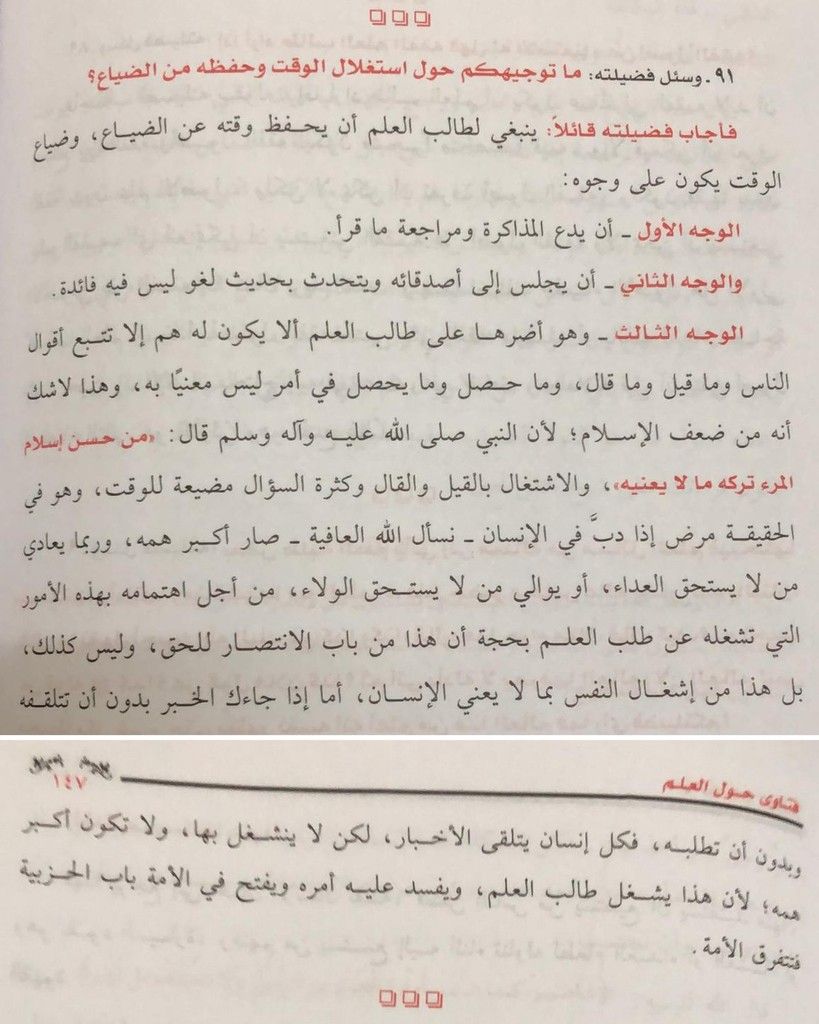 ٩١. وسئل فضيلته: ما توجيهكم حول استغلال الوقت وحفظه من الضياع؟
فأجاب فضيلته قائلاً: ينبغي لطالب العلم أن يحفظ وقته عن الضياع، وضياع
الوقت يكون على وجوه:
الوجه الأول ـ أن يدع المذاكرة ومراجعة ما قرأ.
والوجه الثاني ـ أن يجلس إلى أصدقائه ويتحدث بحديث لغو ليس فيه فائدة.
الوجه الثالث ـ وهو أضرها على طالب العلم ألا يكون له هم إلا تتبع أقوال
الناس وما قيل وما قال، وما حصل وما يحصل في أمر ليس معنيًا به، وهذا لاشك
أنه من ضعف الإسلام؛ لأن النبي صلى الله عليه وآله وسلم قال: «من حسن إسلام
المرء تركه ما لا يعنيه»، والاشتغال بالقيل والقال وكثرة السؤال مضيعة للوقت، وهو في
الحقيقة مرض إذا دبَّ في الإنسان ـ نسأل الله العافية ـ صار أكبر همه، وربما يعادي
من لا يستحق العداء، أو يوالي من لا يستحق الولاء، من أجل اهتمامه بهذه الأمور
التي تشغله عن طلب العلم بحجة أن هذا من باب الانتصار للحق، وليس كذلك،
بل هذا من إشغال النفس بما لا يعني الإنسان، أما إذا جاءك الخبر بدون أن تتلقفه
فتاوى حول العلم
١٤٧
وبدون أن تطلبه، فكل إنسان يتلقى الأخبار، لكن لا ينشغل بها، ولا تكون أكبر
همه؛ لأن هذا يشغل طالب العلم، ويفسد عليه أمره ويفتح في الأمة باب الحزبية
فتتفرق الأمة.